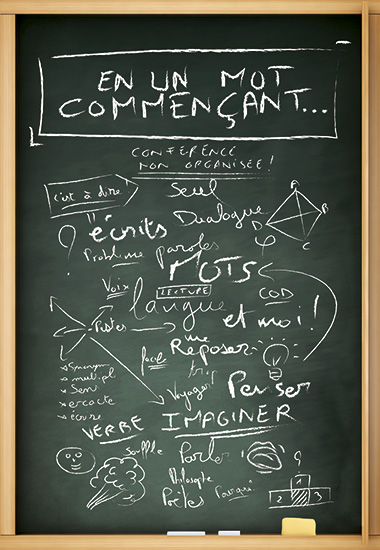 EN UN MOT
COMMENÇANT...
CONFÉRENCE
NON ORGANISÉE !
c'est à dire
Seul
"écrits
Dualogue
A
B
C
D
?
Problème
paroles
MOTS
φ
Voix
LECTURE
COD
langue
Pistes
et moi !
me
Reposer
facile
tri
Synonym
multipl
Sens
exacte
écrire
Voyager
Penser
VERBE IMAGINER
souffle
Parler
?
Philosophe
Poètes
Pourquoi
1
2
3